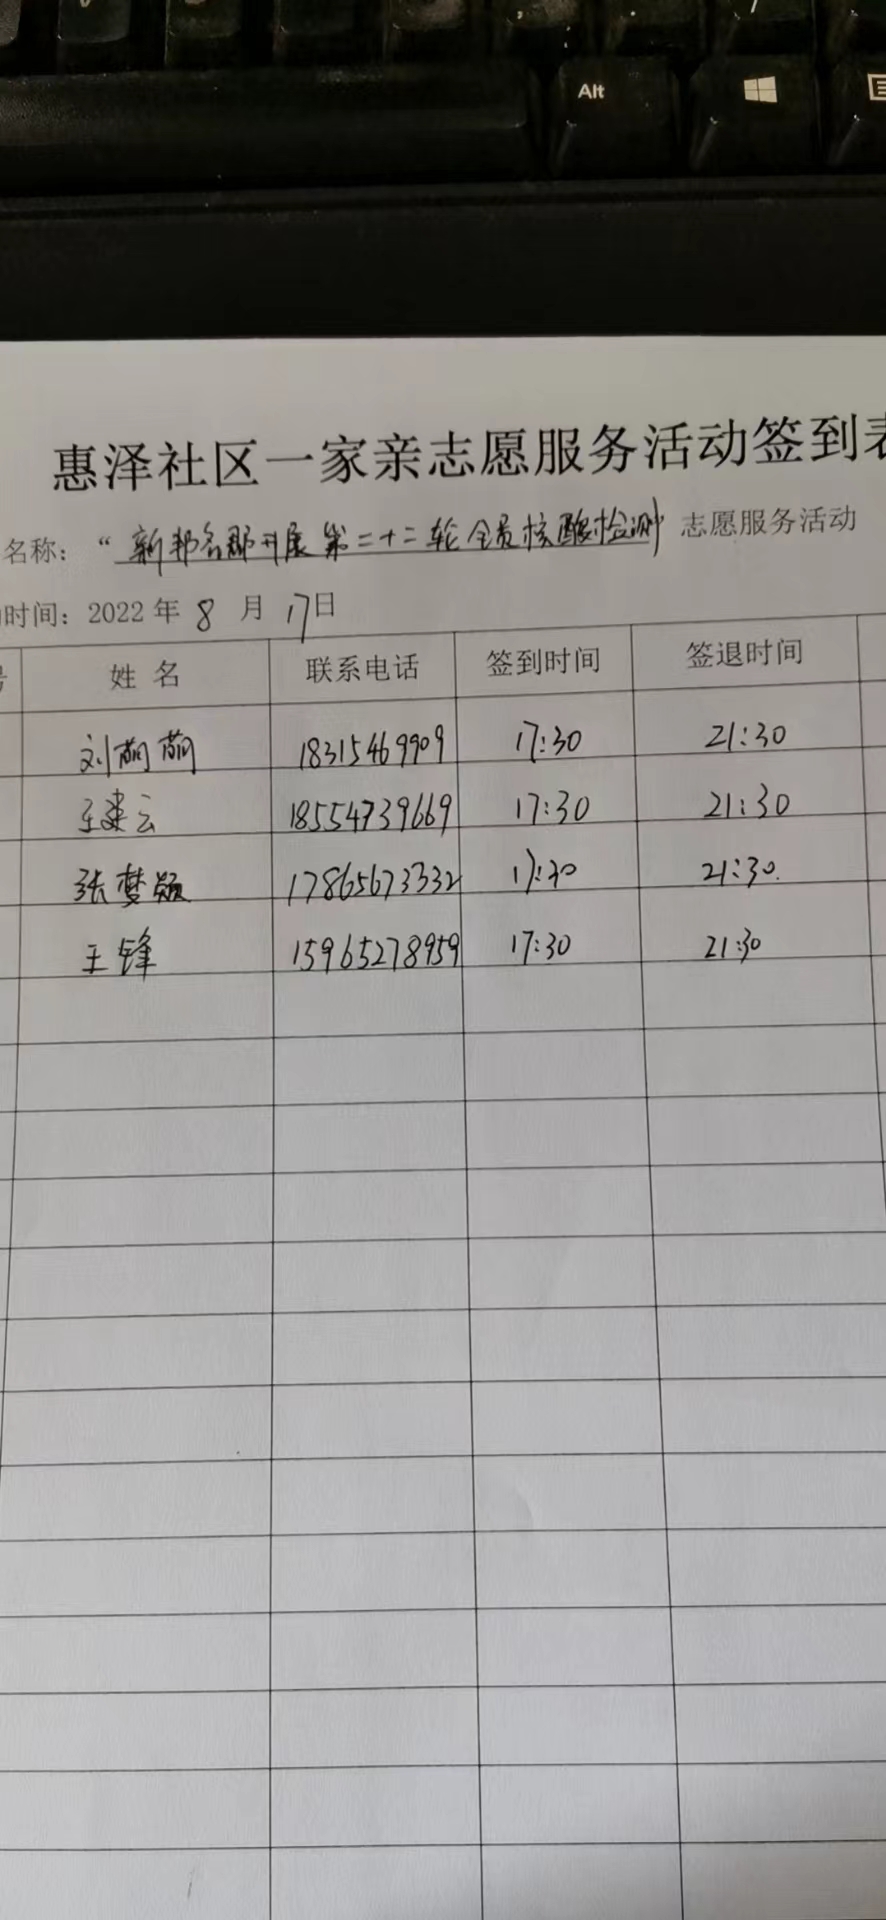 Alt
惠泽社区一家亲志愿服务活动签到表
名称：“新邦名郡开展第二十二轮全员核酸检测”志愿服务活动
时间：2022年8月17日
号 姓名 联系电话 签到时间 签退时间
刘萌萌 18315469909 17:30 21:30
王建云 18554739669 17:30 21:30
张梦颖 17865673332 17:30 21:30.
王锋 15965278959 17:30 21:30